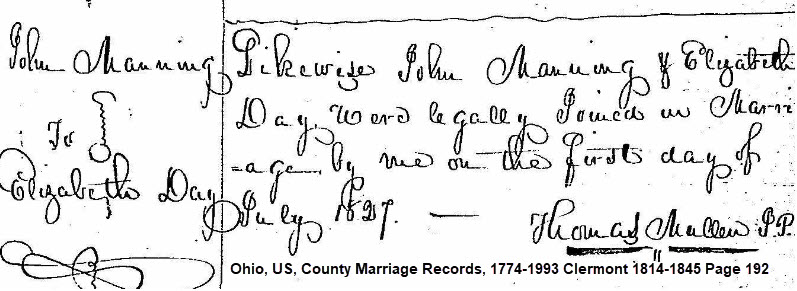 John Manning
To
Elizabeth Day
Likewise John Manning & Elizabeth
Day, were legally Joined in Marri
=age by me on the first day of
July 1827. —
Thomas Mullen J.P.
Ohio, US, County Marriage Records, 1774-1993 Clermont 1814-1845 Page 192